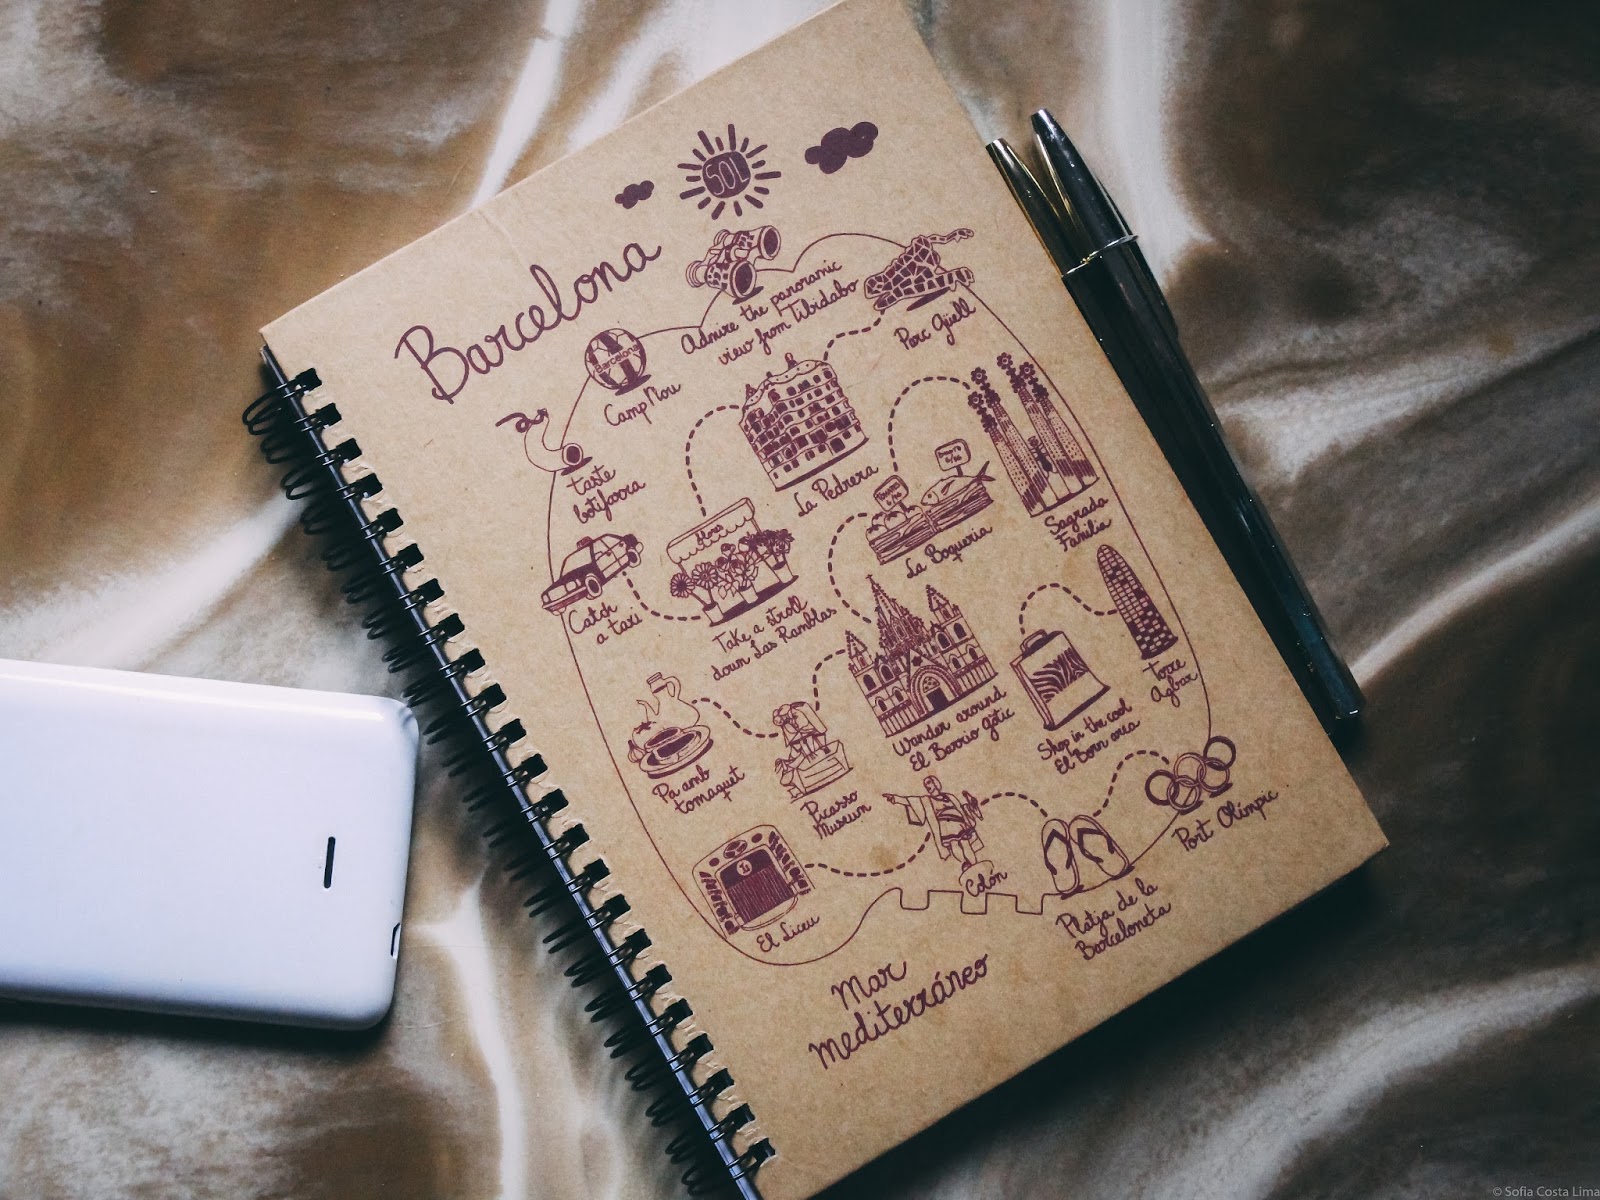 SOL
Barcelona
Admire the panoramic
view from Tibidabo
Parc Güell
Barcelona
Camp Nou
taste
botifarra
La Pedrera
Sagrada
Familia
La Boqueria
flores
Catch
a taxi
Take a stroll
down Las Ramblas
Torre
Agbar
Wander around
El Barrio gòtic
Shop in the cool
El Born area
Pa amb
tomaquet
Picasso
Museum
Port Olímpic
Colón
El Liceu
Platja de la
Barceloneta
Mar
mediterráneo
© Sofia Costa Lima